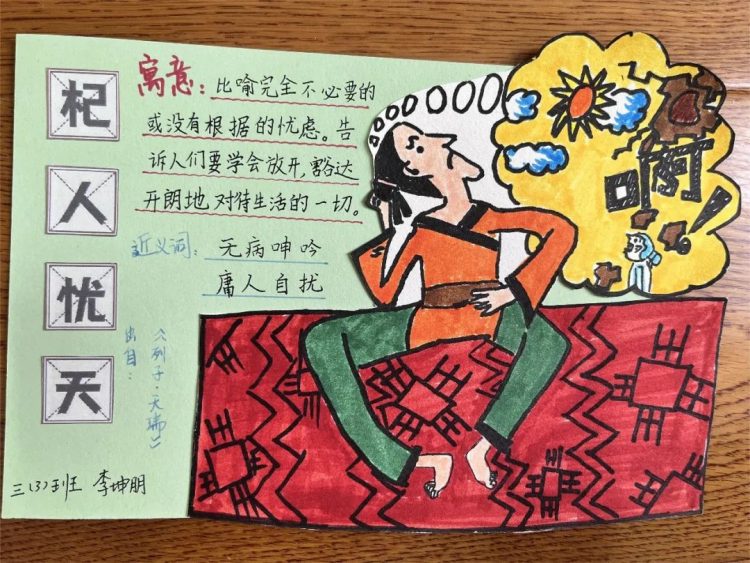 杞
人
忧
天
寓意：比喻完全不必要的
或没有根据的忧虑。告
诉人们要学会放开，豁达
开朗地对待生活的一切。
近义词：无病呻吟
庸人自扰
出自：
《列子·天瑞》
三（3）班 李坤朋
啊！